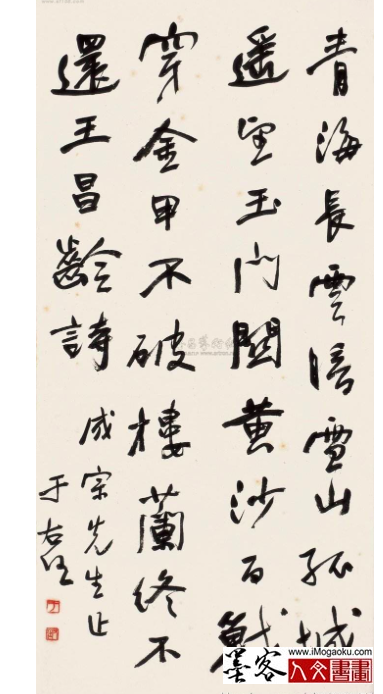 青海長雲暗雪山孤城
遙望玉門關黄沙百戰
穿金甲不破樓蘭終不
還王昌齡詩
成宗先生正
于右任
www.iMogaoku.com
墨客
人文書畫